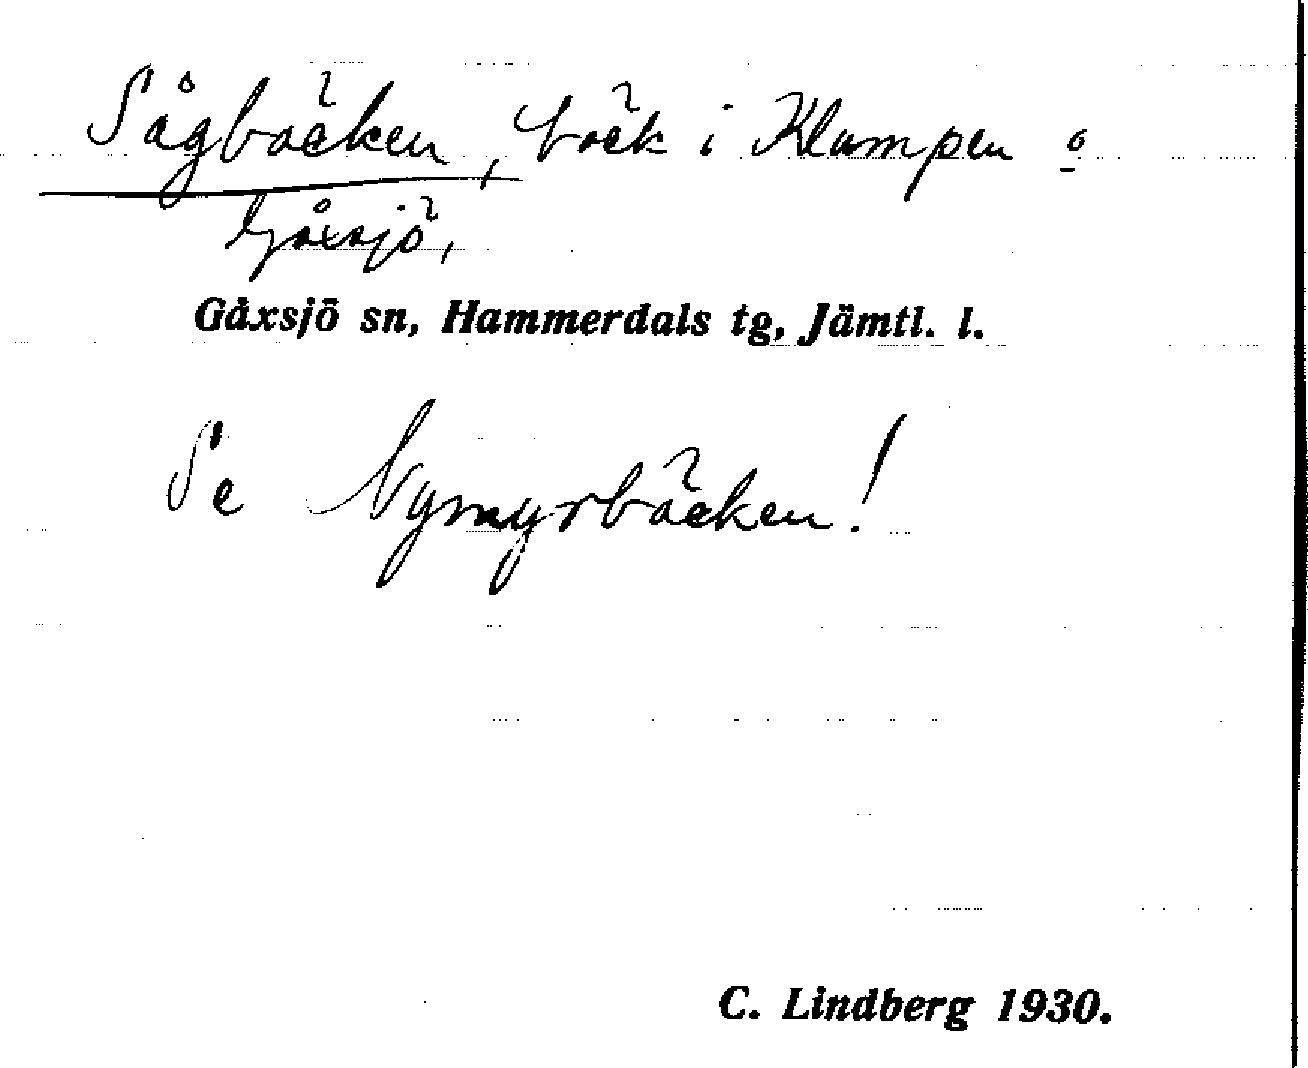 Sågbäcken, bäck i Klumpen o
Gåxsjö,
Gåxsjö sn, Hammerdals tg, Jämtl. l.
Se Nymyrbäcken!
C. Lindberg 1930.